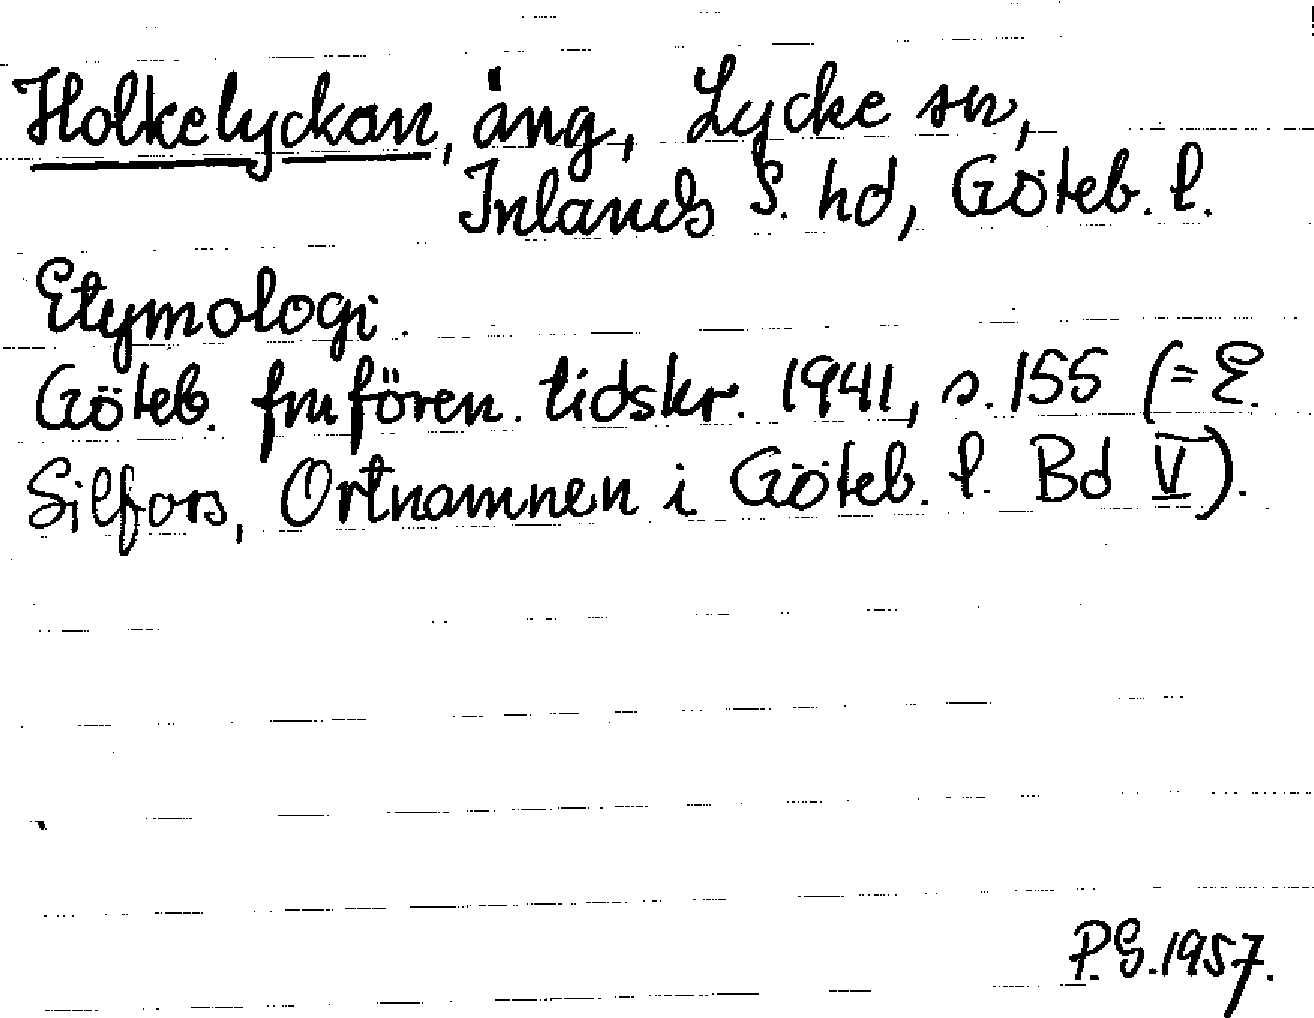 Holkelyckan, äng, Lycke sn,
Inlands S. hd, Göteb. l.
Etymologi.
Göteb. fmfören. tidskr. 1941, s. 155 (= E.
Silfors, Ortnamnen i Göteb. l. Bd V).
P.G. 1957.